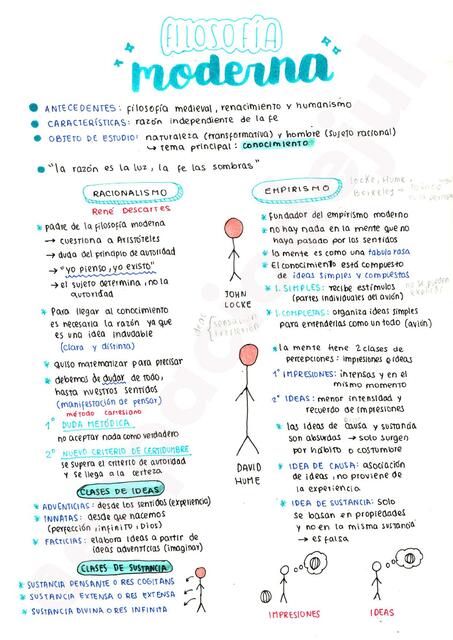 FILOSOFÍA
moderna
ANTECEDENTES: filosofía medieval, renacimiento y humanismo
CARACTERÍSTICAS: razón independiente de la fe
OBJETO DE ESTUDIO: naturaleza (transformativa) y hombre (sujeto racional)
→ tema principal: conocimiento
"la razón es la luz, la fe las sombras"
RACIONALISMO
René Descartes
padre de la filosofía moderna
→ cuestiona a Aristóteles
→ duda del principio de autoridad
→ "yo pienso, yo existo"
→ el sujeto determina, no la
autoridad
Para llegar al conocimiento
es necesaria la razón ya que
es una idea indudable
(clara y distinta)
quiso matematizar para precisar
debemos de dudar de todo,
hasta nuestros sentidos
(manifestación de pensar)
método cartesiano
1° DUDA METÓDICA
no aceptar nada como verdadero
2° NUEVO CRITERIO DE CERTIDUMBRE
se supera el criterio de autoridad
y se llega a la certeza
CLASES DE IDEAS
ADVENTICIAS: desde los sentidos (experiencia)
INNATAS: desde que nacemos
(perfección, infinito, Dios)
FACTICIAS: elabora ideas a partir de
ideas adventicias (imaginar)
CLASES DE SUSTANCIA
SUSTANCIA PENSANTE O RES COGITANS
SUSTANCIA EXTENSA O RES EXTENSA
SUSTANCIA DIVINA O RES INFINITA
EMPIRISMO
Locke, Hume,
Berkeley →
fundador del empirismo moderno
no hay nada en la mente que no
haya pasado por los sentidos
la mente es como una tabula rasa
El conocimiento está compuesto
de ideas simples y compuestas
I. SIMPLES: recibe estímulos
(partes individuales del avión)
no se pueden
explicar
I. COMPLEJAS: organiza ideas simples
para entenderlas como un todo (avión)
JOHN
LOCKE
ideas
sensación
reflexión
la mente tiene 2 clases de
percepciones: impresiones e ideas
1° IMPRESIONES: intensas y en el
mismo momento
2° IDEAS: menor intensidad y
recuerdo de impresiones
las ideas de causa y sustancia
son absurdas → solo surgen
por hábito o costumbre
IDEA DE CAUSA: asociación
de ideas, no proviene de
la experiencia
IDEA DE SUSTANCIA: solo
se basan en propiedades
y no en la misma sustancia
→ es falsa
DAVID
HUME
IMPRESIONES
IDEAS